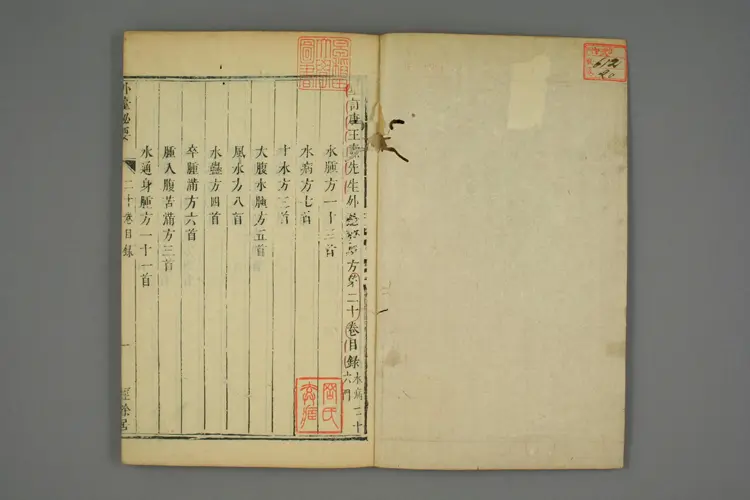 重訂唐王燾先生外臺秘要方第二十卷目錄 水病二十六門
水腫方一十三首
水病方七首
十水方三首
大腹水腫方五首
風水方八首
水蠱方四首
卒腫滿方六首
腫入腹苦滿方三首
水通身腫方一十一首
外臺秘要 二十卷目錄 一 經餘居
612